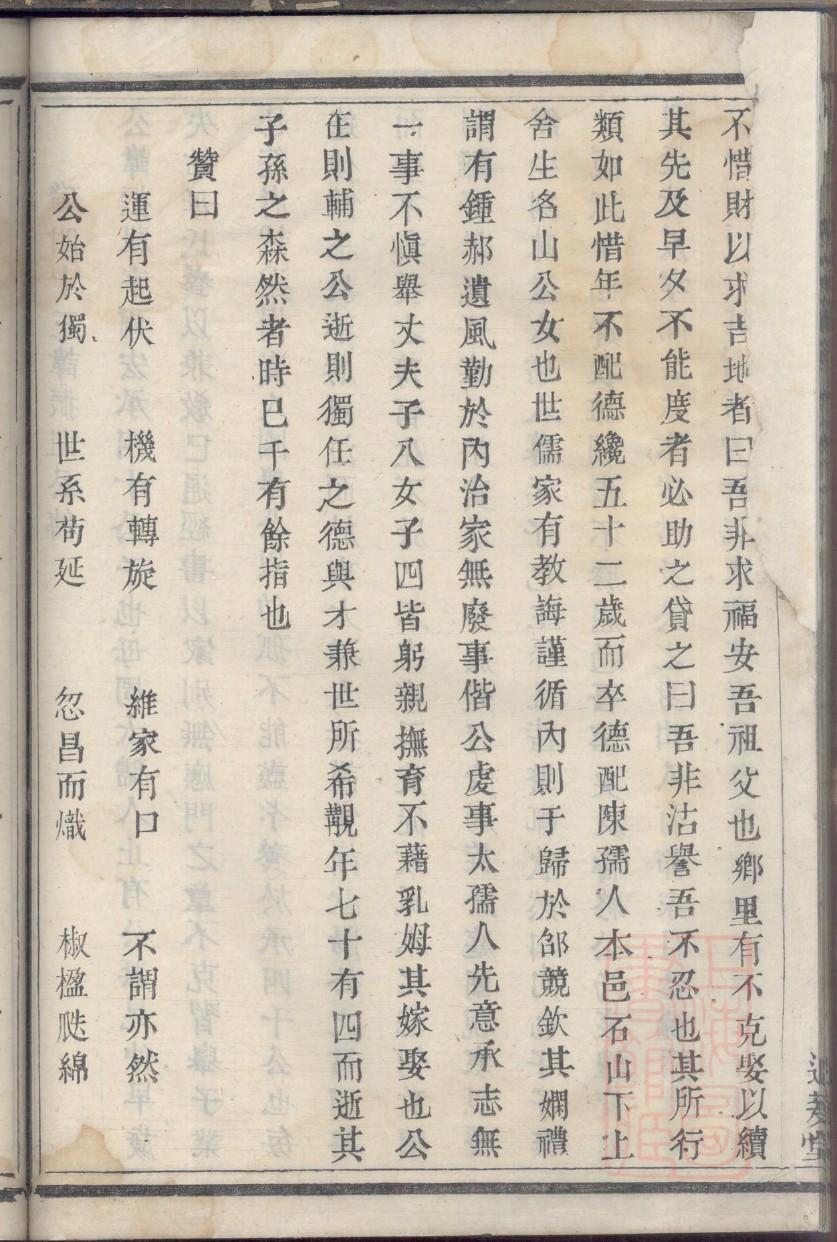 不惜財以求吉地者曰吾非求福安吾祖父也鄉里有不克娶以續
其先及早夕不能度者必助之貸之曰吾非沽譽吾不忍也其所行
類如此惜年不配德纔五十二歲而卒德配陳孺人本邑石山下上
舍生名山公女也世儒家有教誨謹循內則于歸於郃競欽其嫻禮
謂有鍾郝遺風勤於內治家無廢事偕公處事太孺人先意承志無
一事不愼舉丈夫子八女子四皆躬親撫育不藉乳姆其嫁娶也公
在則輔之公逝則獨任之德與才兼世所希覯年七十有四而逝其
子孫之森然者時已千有餘指也
贊曰
運有起伏 機有轉旋 維家有口 不謂亦然
公始於獨 世系苟延 忽昌而熾 椒楹瓞綿